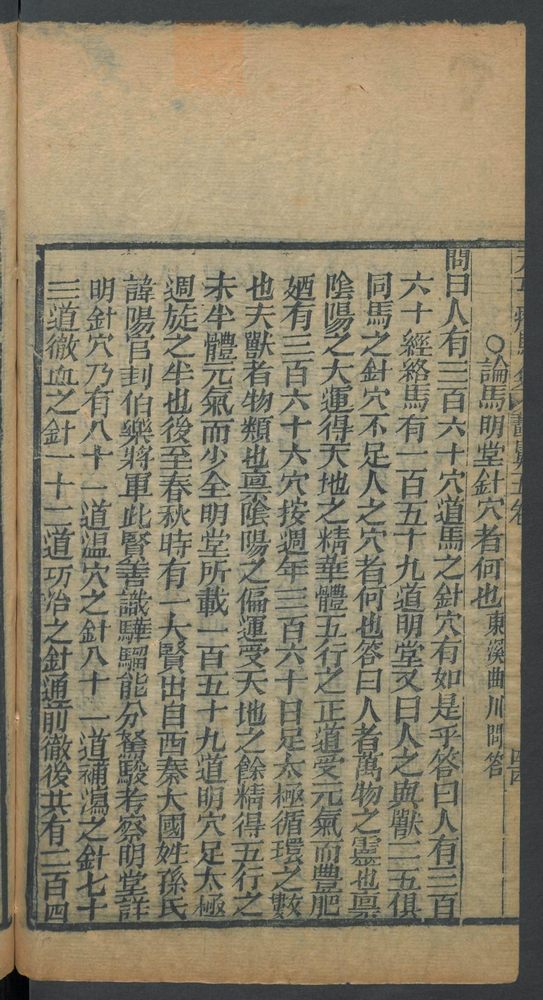 ○論馬明堂針穴者何也東溪曲川問答
問曰人有三百六十穴道馬之針穴有如是乎答曰人有三百
六十經絡馬有一百五十九道明堂又曰人之與獸二五俱
同馬之針穴不足人之穴者何也答曰人者萬物之靈也稟
陰陽之大運得天地之精華體五行之正道受元氣而豊肥
廼有三百六十六穴按週年三百六十日足太極循環之數
也夫獸者物類也稟陰陽之偏運受天地之餘精得五行之
未半體元氣而少全明堂所載一百五十九道明穴足太極
週旋之半也後至春秋時有一大賢出自西秦大國姓孫氏
諱陽官封伯樂將軍此賢善識驊騮能分駑駿考察明堂詳
明針穴乃有八十一道溫穴之針八十一道補瀉之針七十
三道徹血之針一十二道巧冶之針通前徹後共有二百四